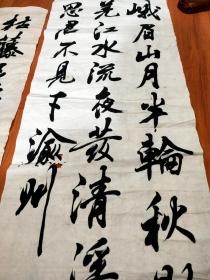 峨眉山月半輪秋影
光江水流夜發清溪
思君不見下渝州
枯藤老